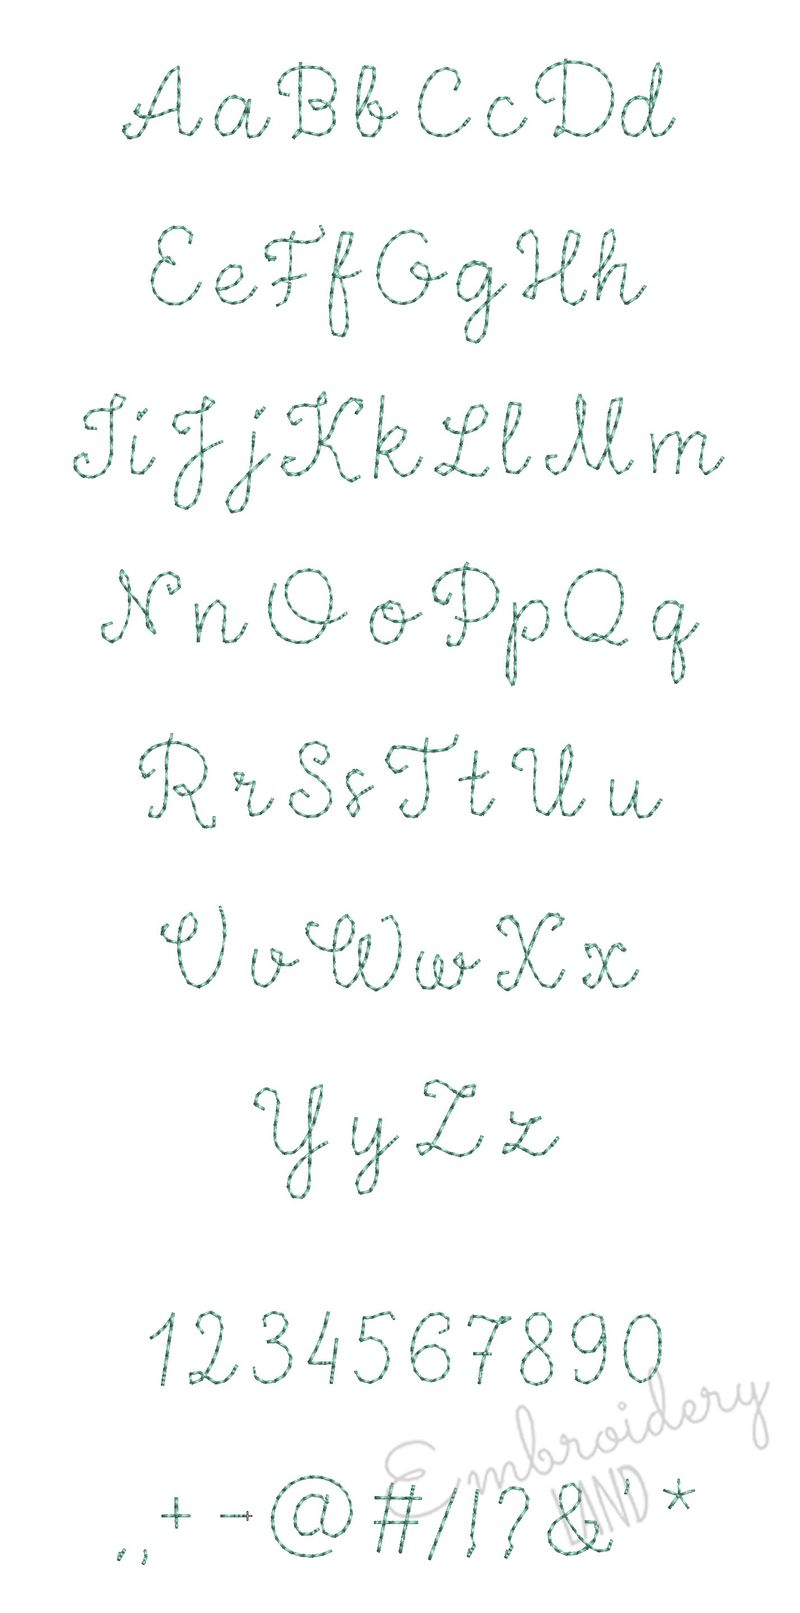 AaBbCcDd
EeFfGgHh
IiJjKkLlMm
NnOoPpQq
RrSsTtUu
VvWwXx
YyZz
1234567890
.,+-@#/!?&'*
Embroidery
LAND